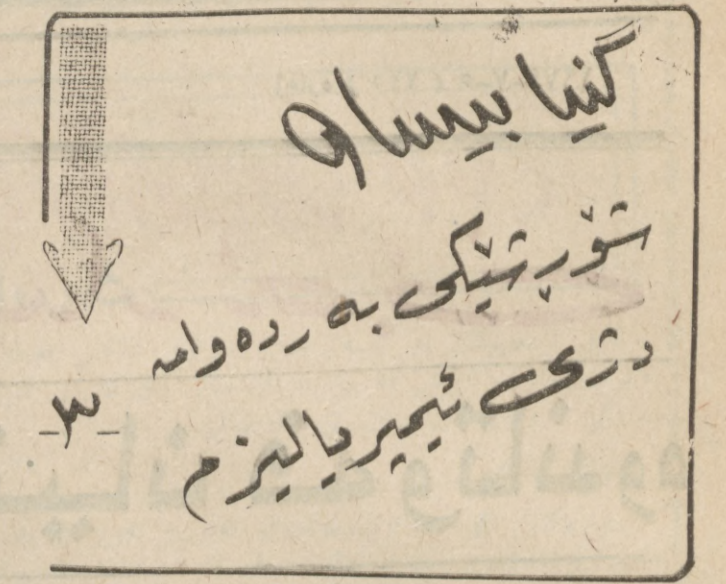 گنیا بیساو
شۆڕشێکی بە ردەوامە
دژی ئیمپریالیزم
-٣-